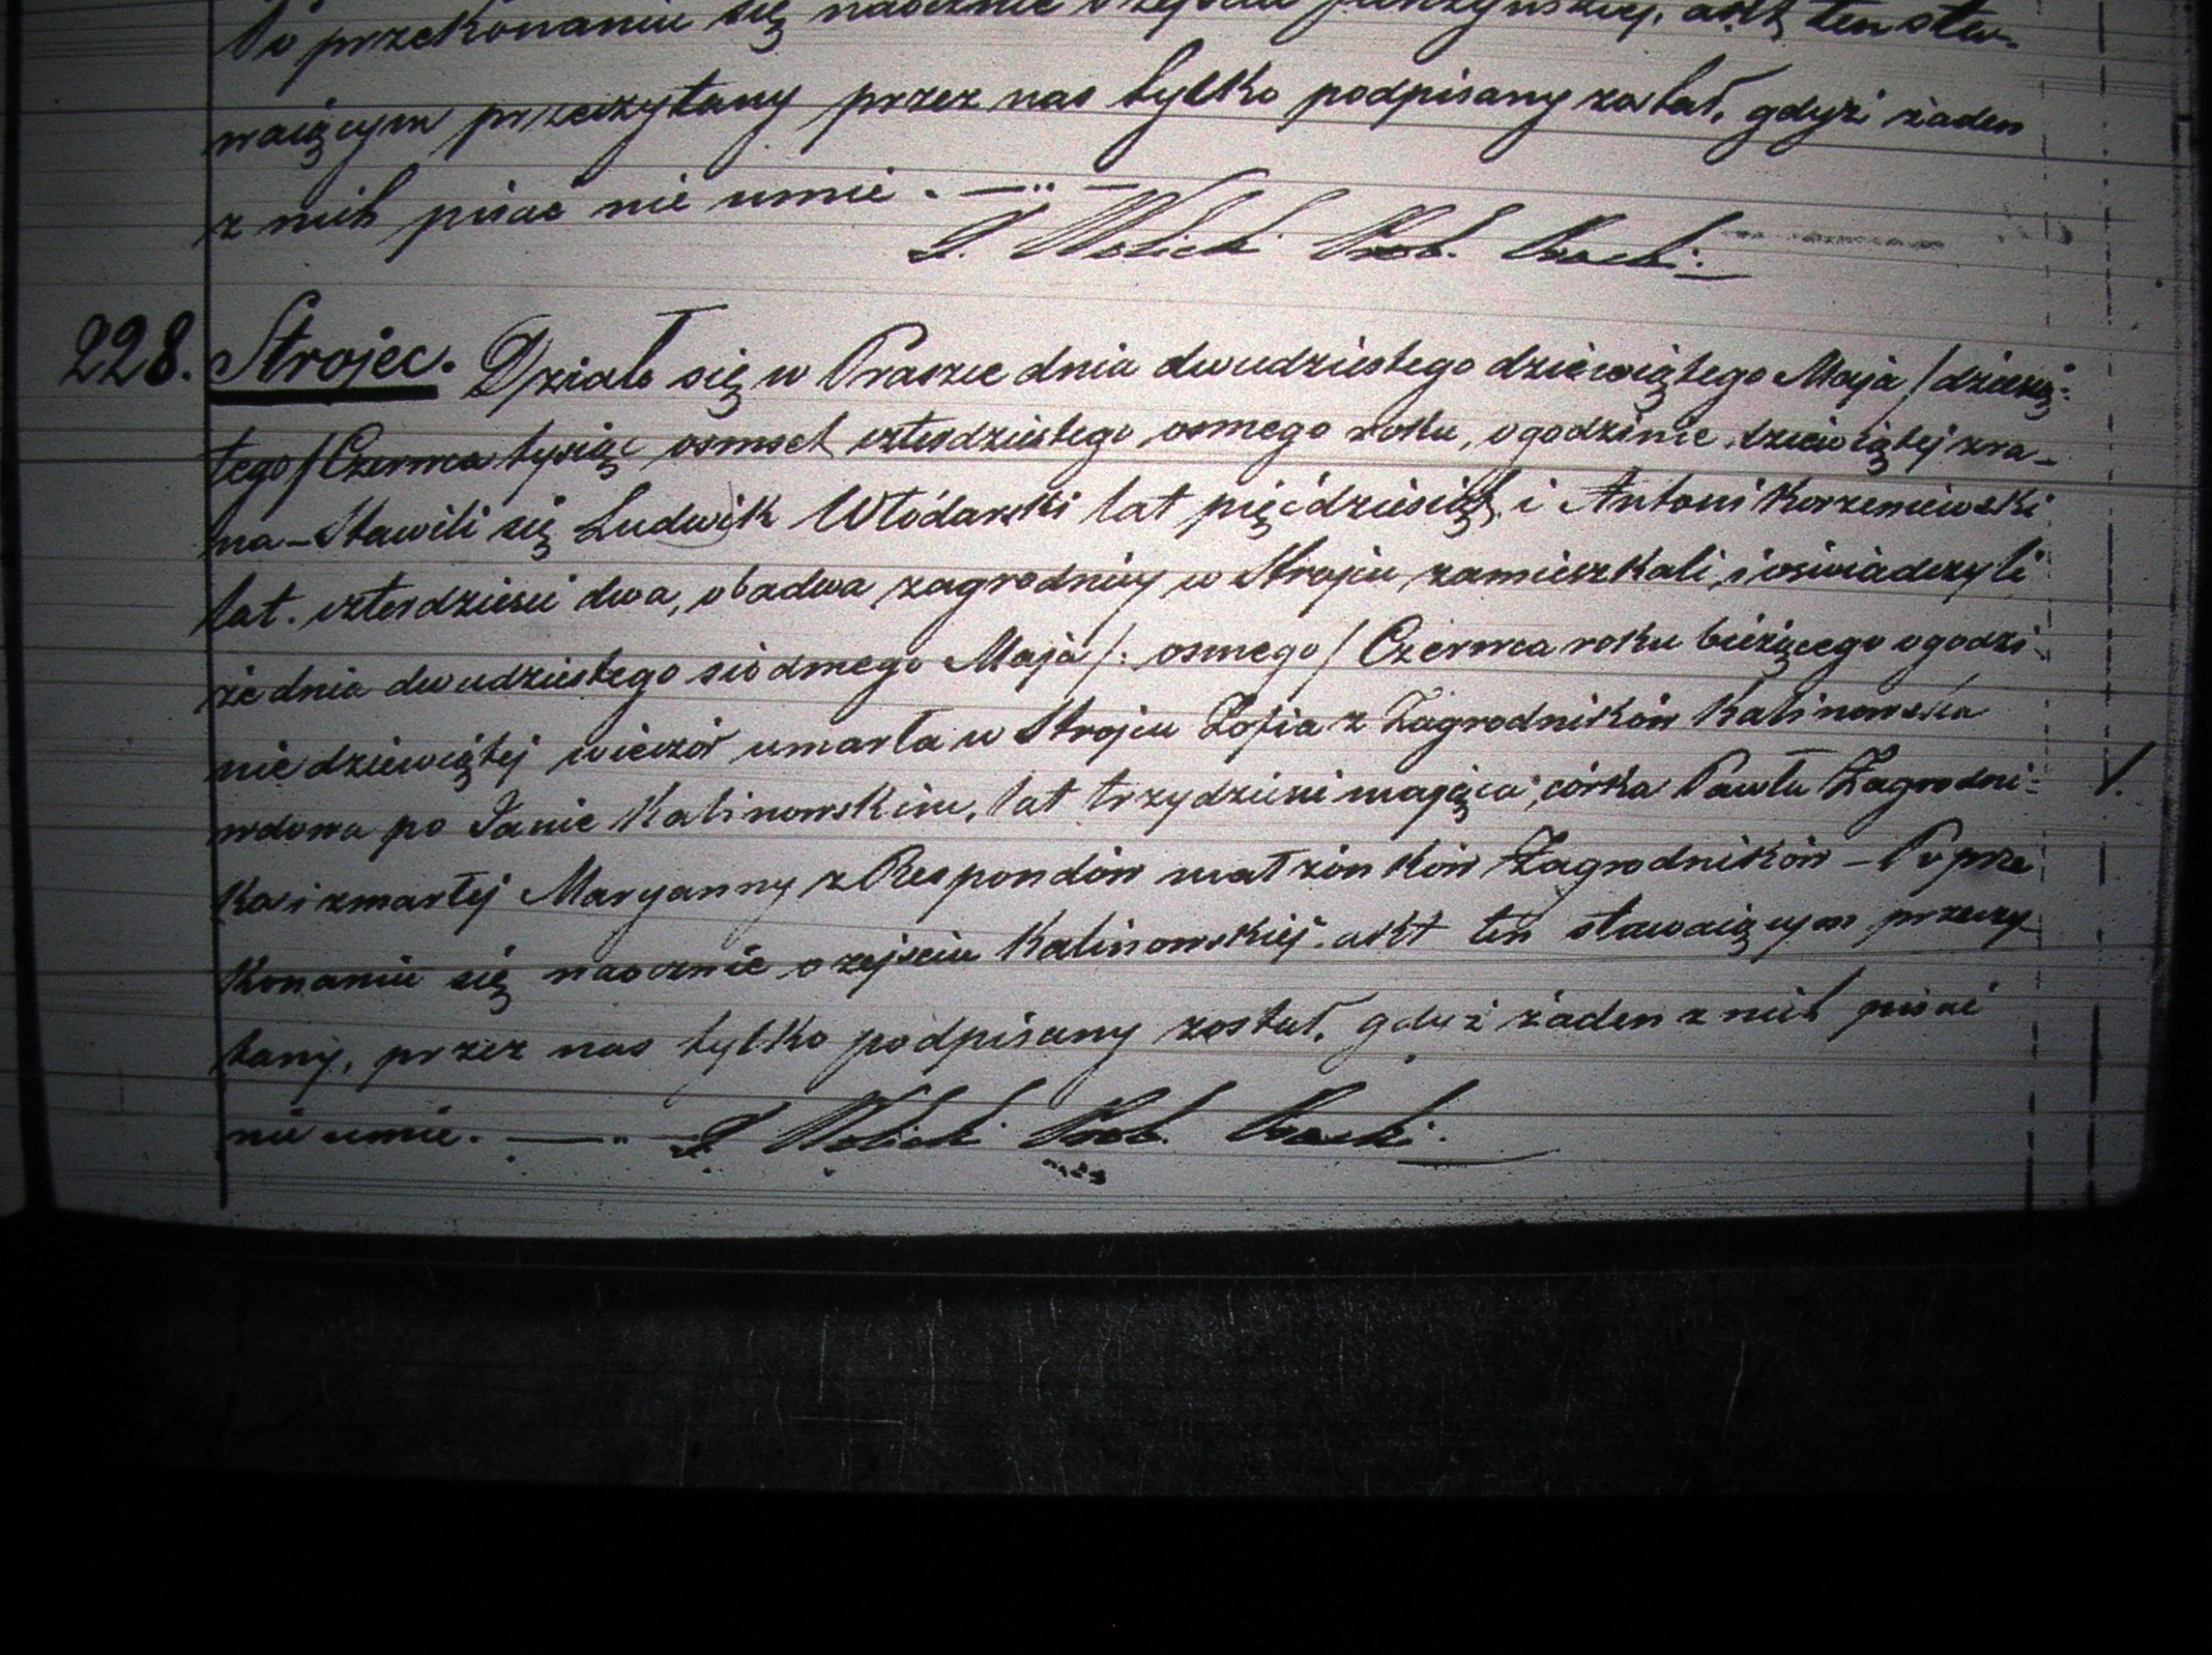 Po przekonaniu się naocznie o zejściu akt ten sta-
waiącym przeczytany przez nas tylko podpisany został, gdyż żaden
z nich pisać nie umie. —
Prob. Praszki.
228. Strojec. Działo się w Praszce dnia dwudziestego dziewiątego Maja / dziesią-
tego / Czerwca tysiąc osmset czterdziestego osmego roku, o godzinie dziewiątej zra-
na – Stawili się Ludwik Włódarski lat pięćdziesiąt, i Antoni Korzeniewski
lat. czterdzieści dwa, obadwa zagrodnicy w Strojcu zamieszkali, i oświadczyli
że dnia dwudziestego siódmego Maja /: osmego / Czerwca roku bieżącego o godzi
nie dziewiątej wieczór umarła w Strojcu Zofia z Zagrodników Kalinowska
wdowa po Janie Kalinowskim, lat trzydzieści mająca, córka Pawła Zagrodni-
ka i zmarłej Maryanny z Respondów małżonków Zagrodników – Po prze
konaniu się naocznie o zejściu Kalinowskiej. akt ten stawaiącym przeczy
tany, przez nas tylko podpisany został, gdyż żaden z nich pisać
nie umie. — Prob. Praszki.